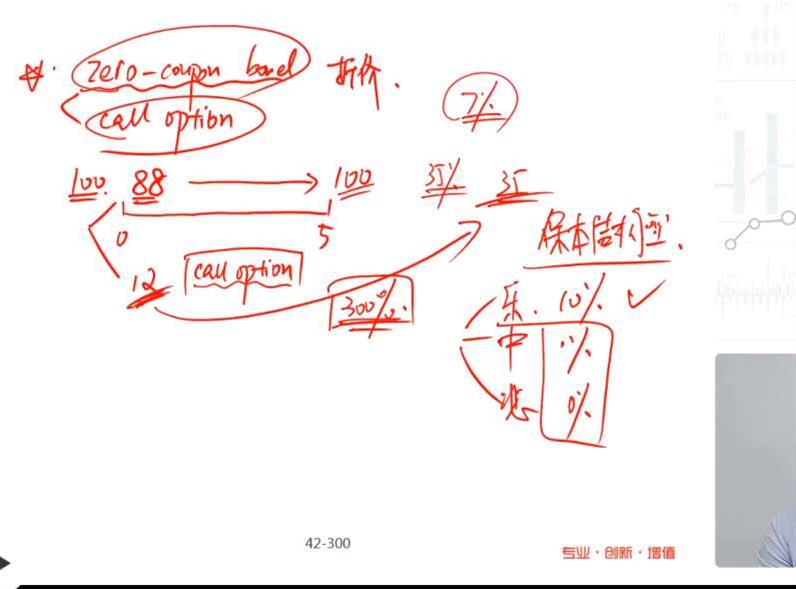 zero-coupon bond 折价.
call option
7%
100. 88 → 100 35% 35
0 5
保本结构型.
12 call option
300%.
乐. 10% ✓
中 1%
悲 0%
42-300
专业·创新·增值